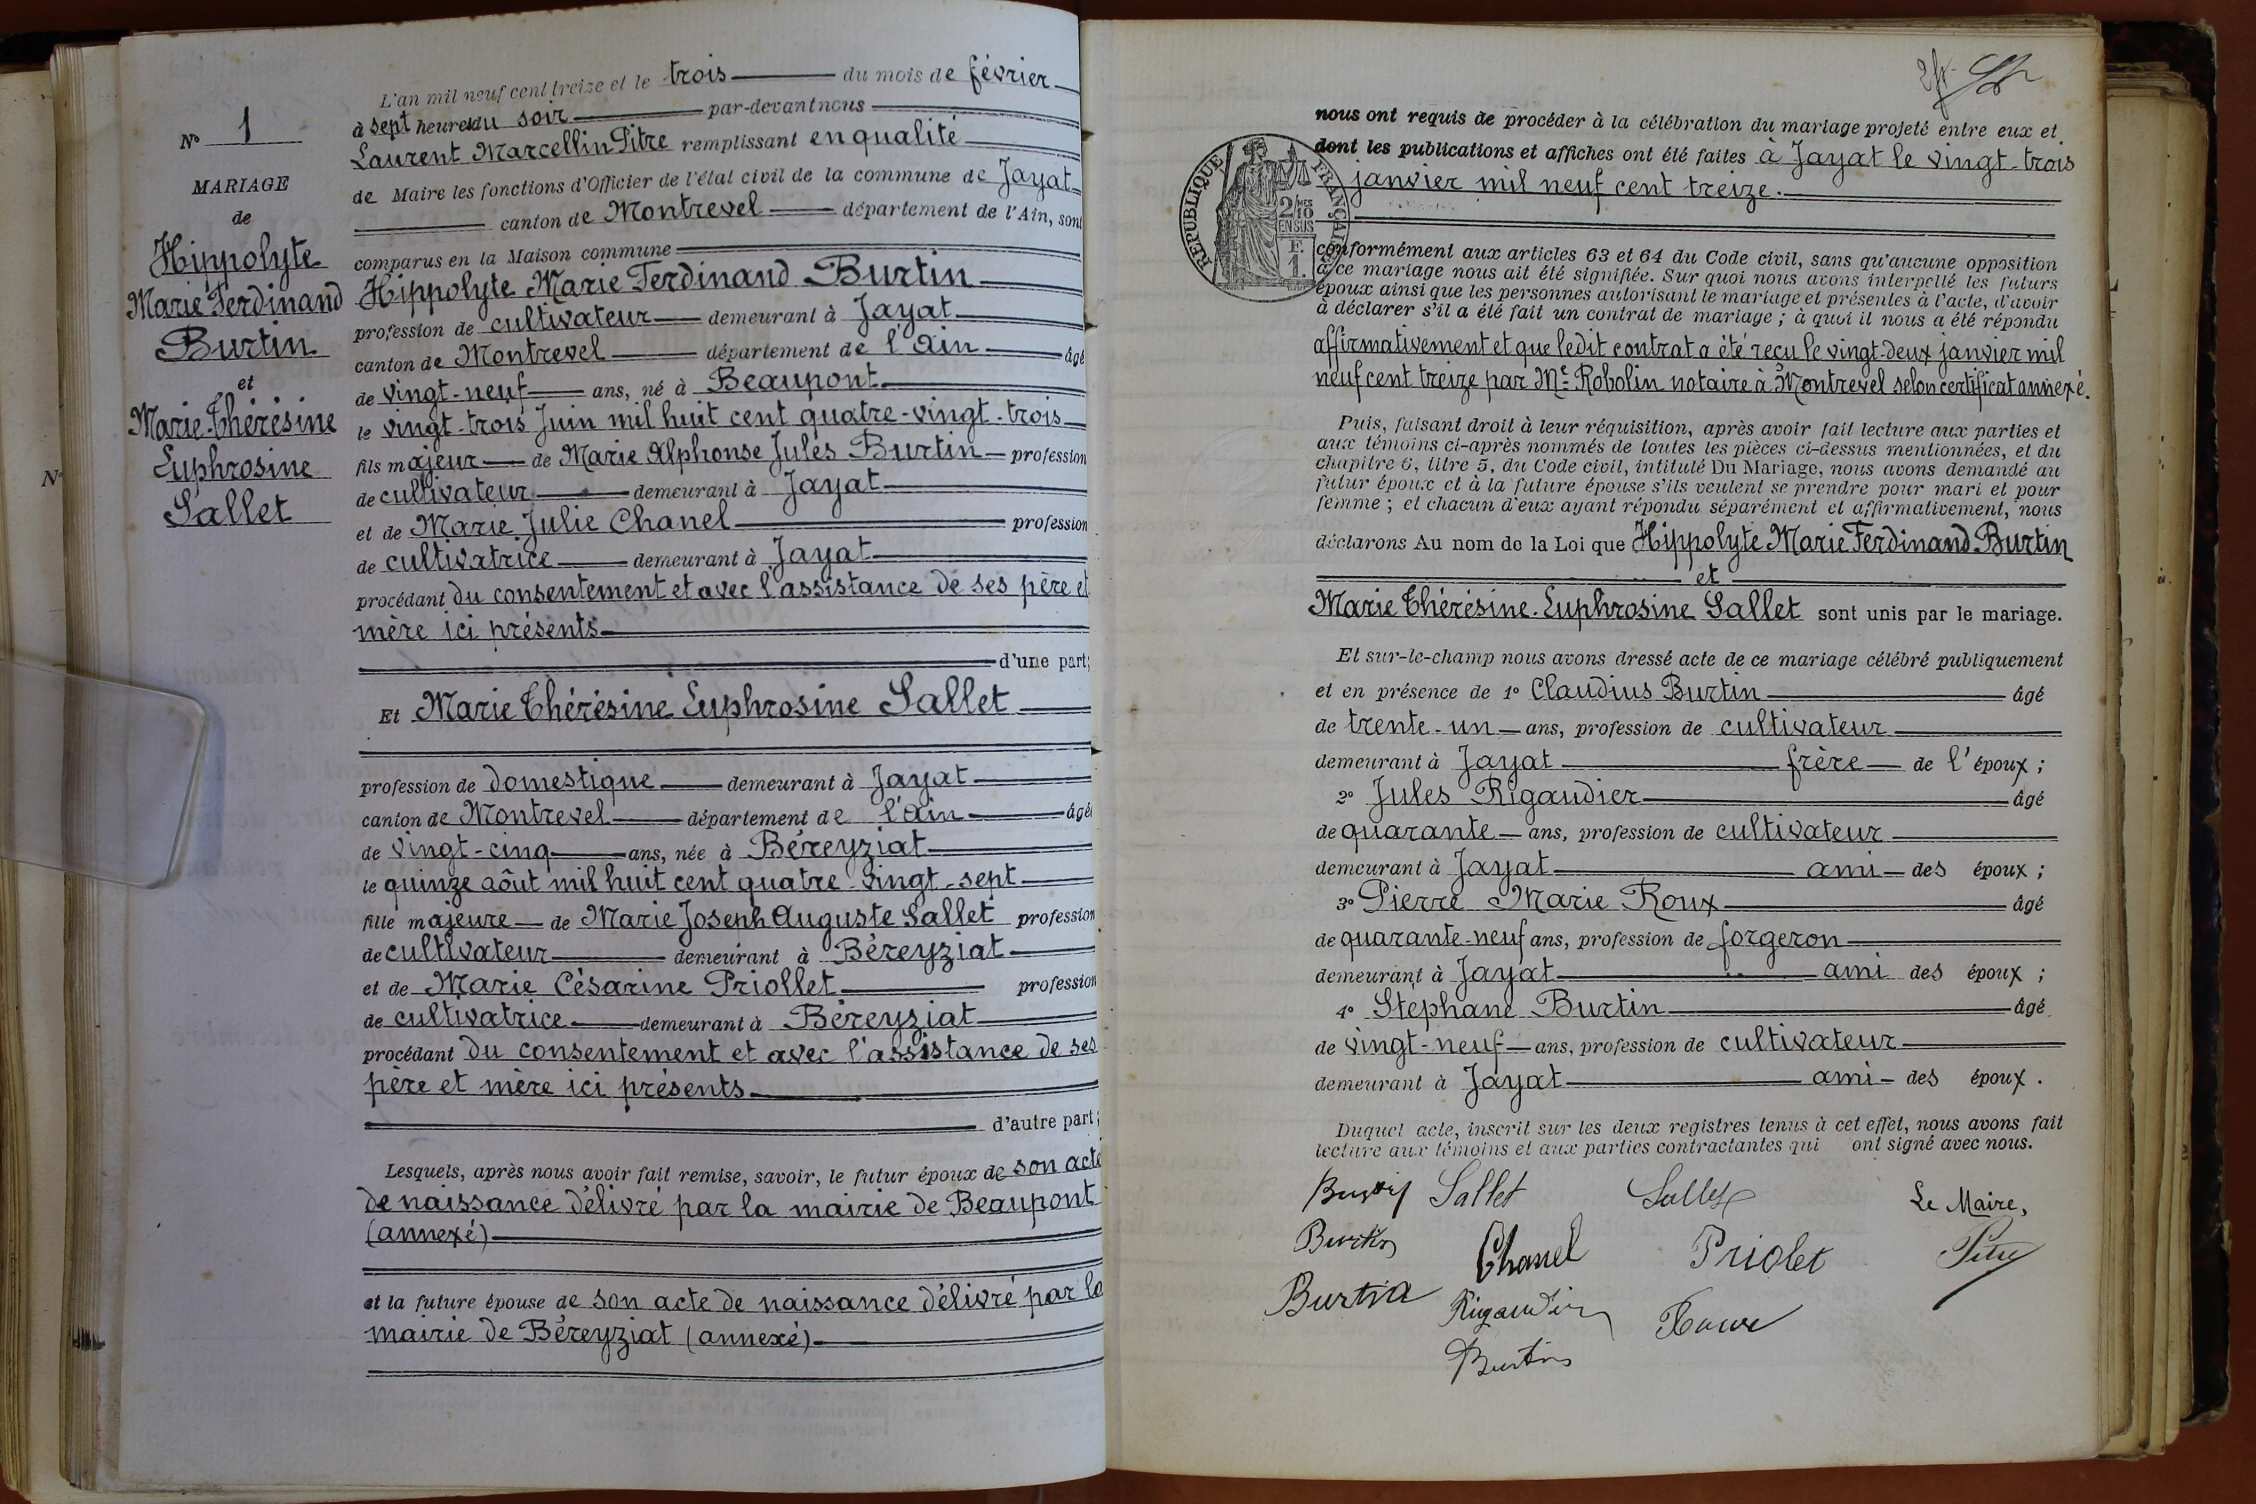 N° 1
MARIAGE
de
Hippolyte
Marie Ferdinand
Burtin
et
Marie Thérésine
Euphrosine
Sallet
L'an mil neuf cent treize et le trois du mois de février
à sept heures du soir par-devant nous
Laurent Marcellin Pitre remplissant en qualité
de Maire les fonctions d'Officier de l'état civil de la commune de Jayat
canton de Montrevel département de l'Ain, sont
comparus en la Maison commune
Hippolyte Marie Ferdinand Burtin
profession de cultivateur demeurant à Jayat
canton de Montrevel département de l'Ain âgé
de vingt-neuf ans, né à Beaupont
le vingt-trois Juin mil huit cent quatre-vingt-trois
fils majeur de Marie Alphonse Jules Burtin profession
de cultivateur demeurant à Jayat
et de Marie Julie Chanel profession
de cultivatrice demeurant à Jayat
procédant du consentement et avec l'assistance de ses père et
mère ici présents
d'une part;
Et Marie Thérésine Euphrosine Sallet
profession de domestique demeurant à Jayat
canton de Montrevel département de l'Ain âgée
de vingt-cinq ans, née à Béreyziat
le quinze août mil huit cent quatre-vingt-sept
fille majeure de Marie Joseph Auguste Sallet profession
de cultivateur demeurant à Béreyziat
et de Marie Césarine Priollet profession
de cultivatrice demeurant à Béreyziat
procédant du consentement et avec l'assistance de ses
père et mère ici présents
d'autre part;
Lesquels, après nous avoir fait remise, savoir, le futur époux de son acte
de naissance délivré par la mairie de Beaupont
(annexé)
et la future épouse de son acte de naissance délivré par la
mairie de Béreyziat (annexé)
N°
nous ont requis de procéder à la célébration du mariage projeté entre eux et
dont les publications et affiches ont été faites à Jayat le vingt-trois
janvier mil neuf cent treize.
RÉPUBLIQUE FRANÇAISE
2/10
EN SUS
F.
1.
conformément aux articles 63 et 64 du Code civil, sans qu'aucune opposition
à ce mariage nous ait été signifiée. Sur quoi nous avons interpellé les futurs
époux ainsi que les personnes autorisant le mariage et présentes à l'acte, d'avoir
à déclarer s'il a été fait un contrat de mariage; à quoi il nous a été répondu
affirmativement et que ledit contrat a été reçu le vingt-deux janvier mil
neuf cent treize par Me Robolin notaire à Montrevel selon certificat annexé.
Puis, faisant droit à leur réquisition, après avoir fait lecture aux parties et
aux témoins ci-après nommés de toutes les pièces ci-dessus mentionnées, et du
chapitre 6, titre 5, du Code civil, intitulé Du Mariage, nous avons demandé au
futur époux et à la future épouse s'ils veulent se prendre pour mari et pour
femme; et chacun d'eux ayant répondu séparément et affirmativement, nous
déclarons Au nom de la Loi que Hippolyte Marie Ferdinand Burtin
et
Marie Thérésine Euphrosine Sallet sont unis par le mariage.
Et sur-le-champ nous avons dressé acte de ce mariage célébré publiquement
et en présence de 1° Claudius Burtin âgé
de trente-un ans, profession de cultivateur
demeurant à Jayat frère de l'époux;
2° Jules Rigaudier âgé
de quarante ans, profession de cultivateur
demeurant à Jayat ami des époux;
3° Pierre Marie Roux âgé
de quarante-neuf ans, profession de forgeron
demeurant à Jayat ami des époux;
4° Stéphane Burtin âgé
de vingt-neuf ans, profession de cultivateur
demeurant à Jayat ami des époux.
Duquel acte, inscrit sur les deux registres tenus à cet effet, nous avons fait
lecture aux témoins et aux parties contractantes qui ont signé avec nous.
Burtin Sallet Sallet Le Maire,
Burtin Chanel Priolet Pitre
Burtin Rigaudier Roux
Burtin